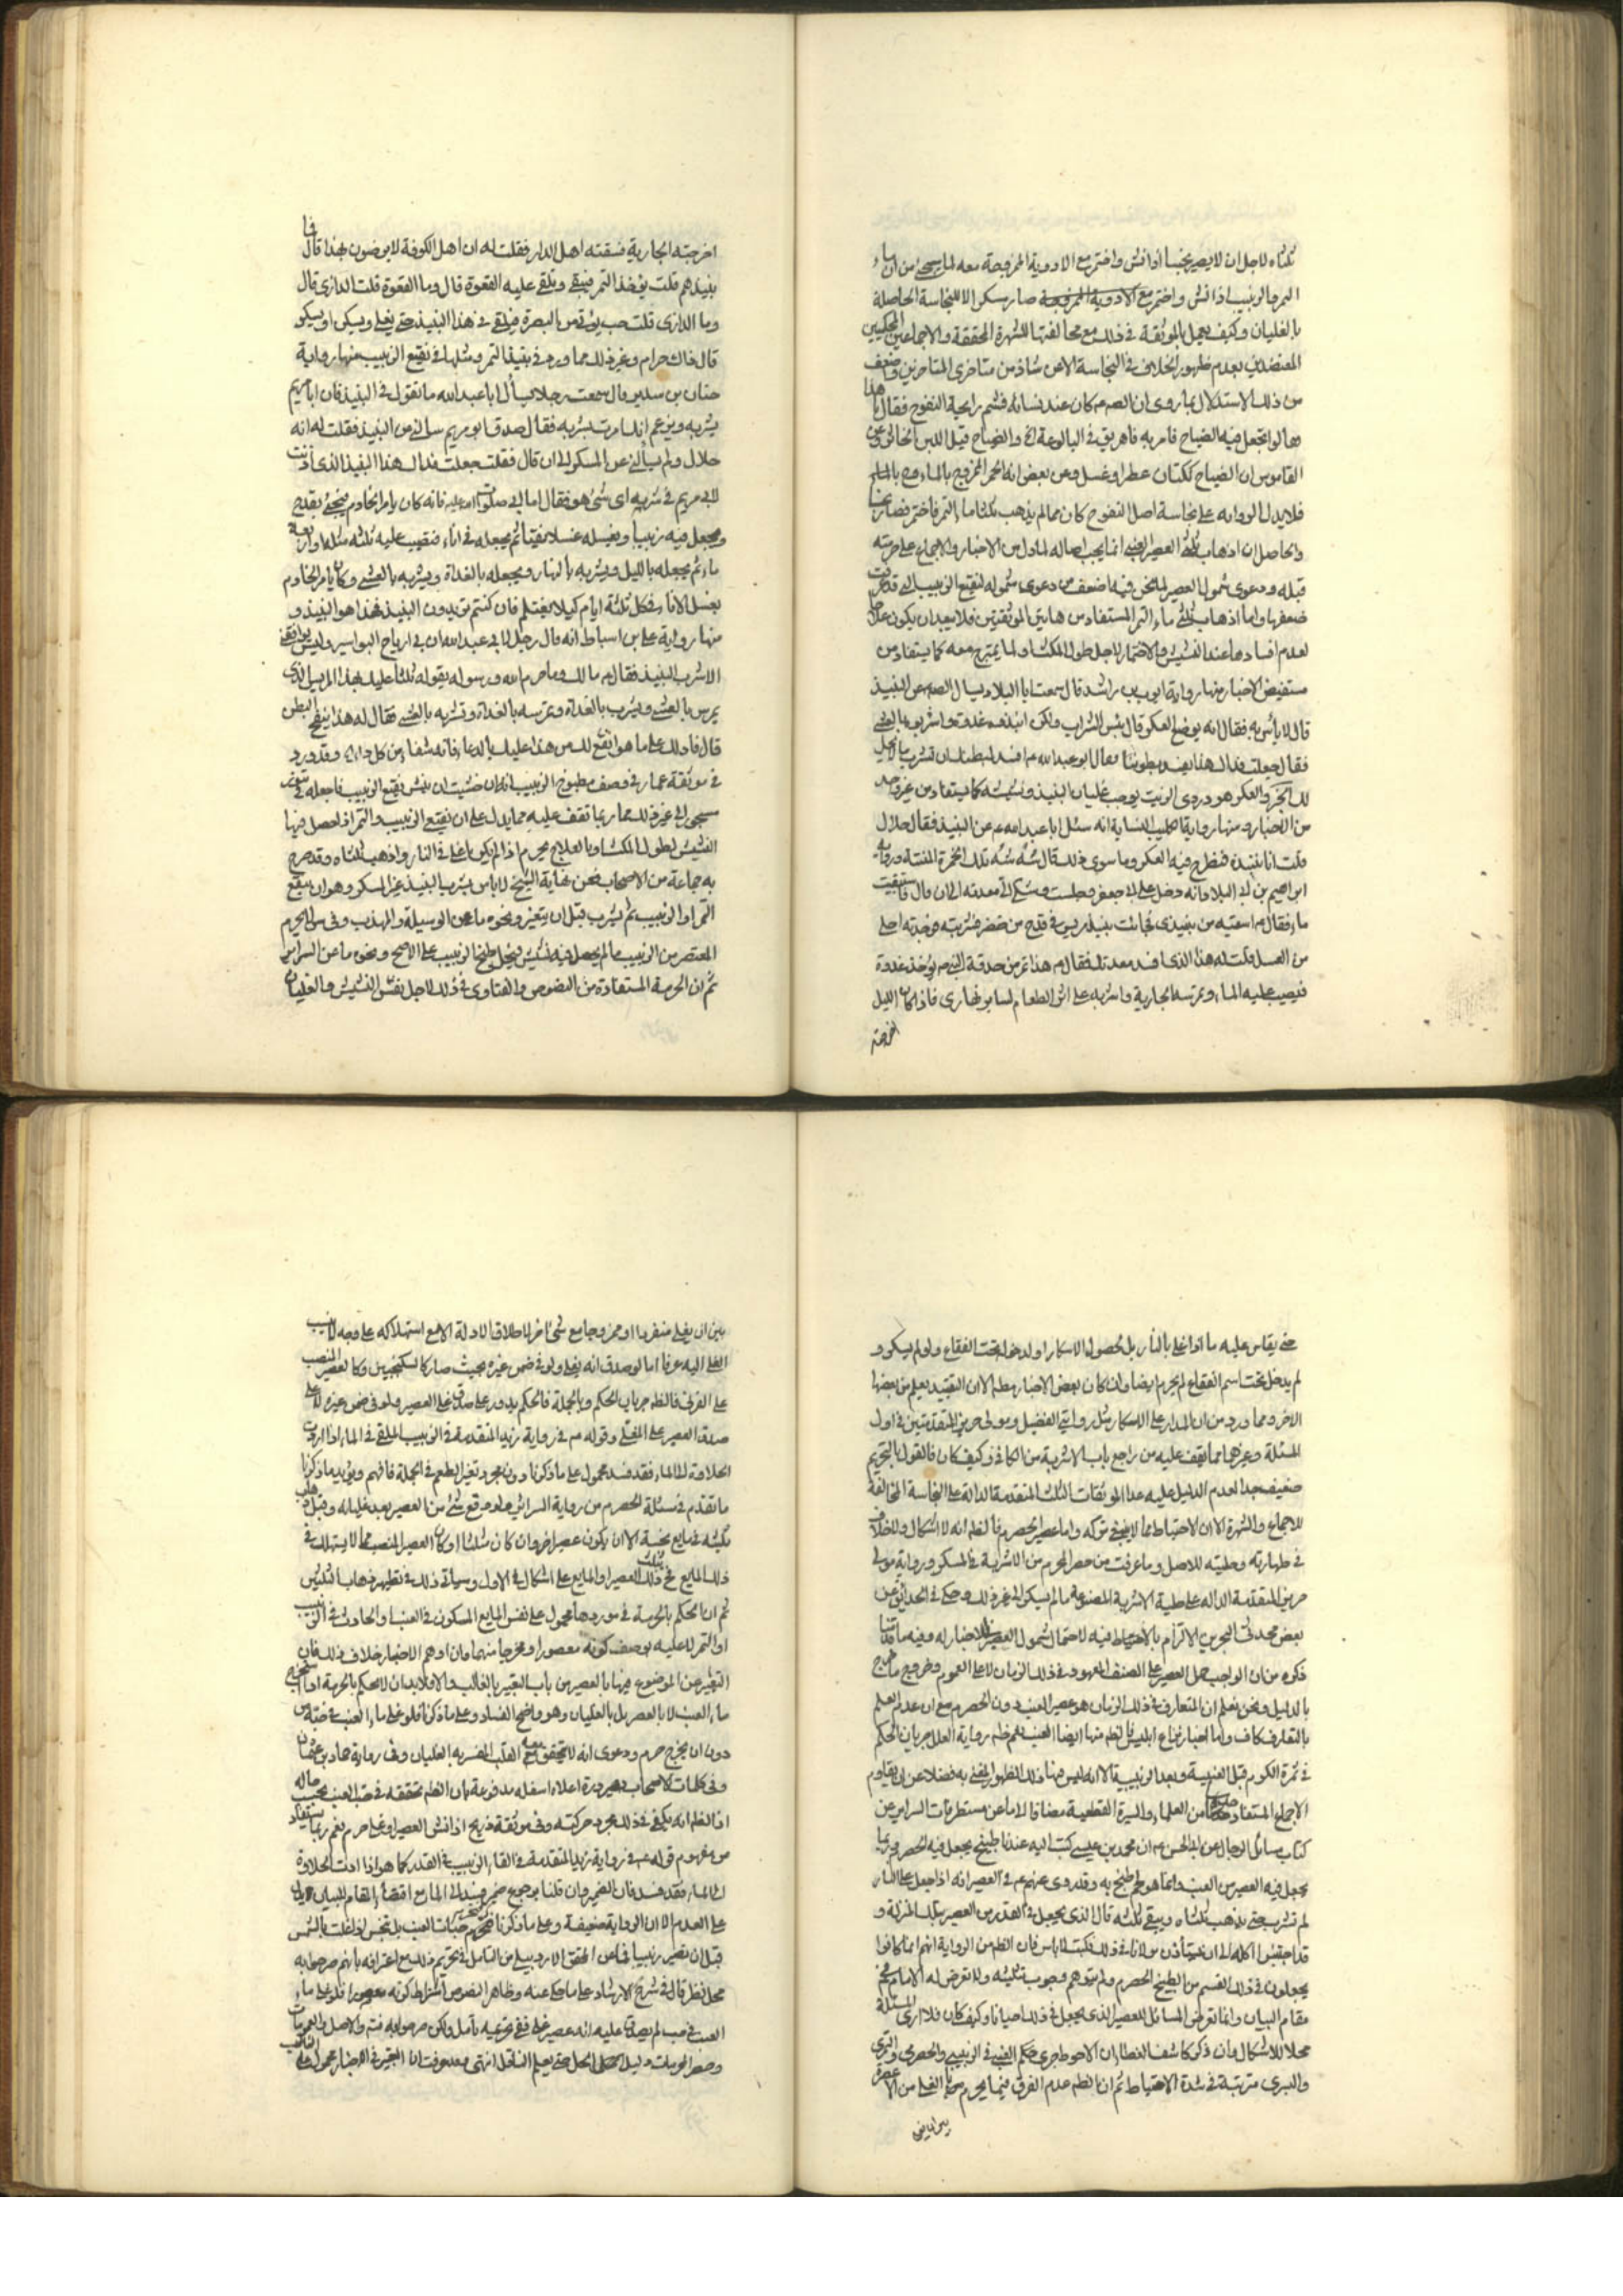 ثلثاه لاجل ان لا يصير نجسا اذا نش واختمر مع الادوية الممزوجة معه لما سيجئ من ان ماء
التمر والزبيب اذا نش واختمر مع الادوية الممزوجة صار مسكرا لا للنجاسة الحاصلة
بالغليان وكيف يعمل بالموثقة في ذلك مع مخالفتها للشهرة المحققة والاجماعين المحكيين
المعتضدين بعدم ظهور الخلاف في النجاسة الا عن شاذ من متاخرى المتاخرين وضعف
من ذلك الاستدلال بما روى ان الصم كان عند نسائه فشم رايحة النضوح فقال ما هذا
قالوا نجعل فيه الضياح فامر به فاهريق في البالوعة والضياح قيل اللبن الخاثر وعن
القاموس ان الضياح ككتان عطر او غسل وعن بعض انه الخمر الممزوج بالماء
فلا يدل الرواية على نجاسة اصل النضوح كان مما لم يذهب ثلثا ماء التمر فاختمر فصار نجسا
والحاصل ان اذهاب ثلثى العصير العنبى انما يجب اصالة لما دل من الاخبار والاجماع على حرمته
قبله ودعوى شمول العصير لما نحن فيه اضعف من دعوى شموله لنقيع الزبيب التى قد عرفت
ضعفها واما اذهاب ثلثى ماء التمر المستفاد من هاتين الموثقتين فلا يبعد ان يكون علاجا
لعدم افسادها عند النشيش والاختمار لاجل طول المكث او لما يمتزج معه كما يستفاد من
مستفيض الاخبار منها رواية ايوب بن راشد قال سمعت ابا البلاد يسال الصم عن النبيذ
قال لا باس به فقال انه يوضع العكر قال بئس الشراب ولكن انبذه غدوة واشربه بالعشى
فقال جعلت فداك هذا يفسد بطوننا فقال ابوعبدالله م افسد لبطنك ان تشرب ما لا يحل
لك الخبر والعكر هو دردى الزيت يوجب غليان البنيذ ونشيشه كما يستفاد من غير واحد
من الاخبار ومنها رواية الكلبى النسابة انه سئل ابا عبدالله عم عن النبيذ فقال حلال
قلت انا ننبذه فنطرح فيه العكر وما سوى ذلك قال شُه شُه تلك الخمرة المنتنة ورواية
ابراهيم بن ابى البلاد انه دخل على ابى جعفر وجلست وشكى الى معدته الى ان قال فاستقيت
ماء فقال م اسقيه من نبيذى فجائت بنبيذ مريس في قدح من صفر فشربته فوجدته احلى
من العسل قلت له هذا الذى افسد معدتك فقال م هذا تمر من صدقة النبى ص يؤخذ غدوة
فيصب عليه الماء وتمرسه الجارية واشربه على اثر الطعام لساير نهارى فاذا كان الليل
اخرجته
اخرجته الجارية فسقته اهل الدار فقلت له ان اهل الكوفة لا يرضون بهذا قال فما
نبيذهم قلت يؤخذ التمر فينقى وتلقى عليه القعوة قال وما القعوة قلت الدازى قال
وما الدازى قلت حب يؤتى من البصرة فيلقى في هذا النبيذ حتى يغلى ويسكن او يسكر
قال ذاك حرام وغير ذلك مما ورد في نبيذ التمر ومثلها في نقيع الزبيب منها رواية
حنان بن سدير قال سمعت رجلا يسأل ابا عبدالله ما تقول في النبيذ فان ابا مريم
يشربه ويزعم انك امرته بشربه فقال صدق ابو مريم سالنى عن النبيذ فقلت له انه
حلال ولم يسألنى عن المسكر الى ان قال فقلت جعلت فداك هذا النبيذ الذى أذنت
لابى مريم في شربه اى شئ هو فقال اما ابى صلوات الله عليه فانه كان يامر الخادم فيجئ بقدح
ويجعل فيه زبيبا ويغسله غسلا نقيتا ثم يجعله في اناء فتصب عليه ثلثه مثله او اربعة
ماء ثم يجعله بالليل ويشربه بالنهار ويجعله بالغداة ويشربه بالعشى وكان يامر الخادم
بغسل الاناء في كل ثلثة ايام كيلا يغتلم فان كنتم تريدون النبيذ فهذا هو النبيذ و
منها رواية على بن اسباط انه قال رجل لابى عبدالله ان بى ارياح البواسير وليس يوافقنى
الا شرب النبيذ فقال م مالك وما حرم الله ورسوله يقوله ثلثا عليك بهذا المريس الذى
يمرس بالعشى ويشرب بالغداة وتمرسه بالغداة وتشربه بالعشى فقال له هذا ينفخ البطن
قال فادلك على ما هو انفع لك من هذا عليك بالدعاء فانه شفاء من كل داء وقد ورد
في موثقة عمار في وصف مطبوخ الزبيب انه ان خشيت ان ينش نقيع الزبيب فاجعله في تنور
سجى الى غير ذلك مما ربما تقف عليه مما يدل على ان نقيع الزبيب والتمر اذا حصل فيها
النشيش لطول المكث او بالعلاج محرم اذا لم يكن باعلى في النار واذهب ثلثاه وقد صرح
به جماعة من الاصحاب فعن نهاية الشيخ لا باس بشرب النبيذ غير المسكر وهو ان ينقع
التمر او الزبيب ثم يشرب قبل ان يتغير ونحوه ما عن الوسيلة والمهذب وفى س لا يحرم
المعتصر من الزبيب ما لم يحصل فيه نشيش فيحل طبخ الزبيب على الاصح ونحوه ما عن السرائر
ثم ان الحرمة المستفادة من النصوص والفتاوى في ذلك لاجل نفس النشيش والغليان
حتى يقاس عليه ما اذا غلى بالنار بل لحصول الاسكار او لدخوله تحت الفقاع ولو لم يسكر و
لم يدخل تحت اسم الفقاع لم يحرم ايضا وان كان بعض الاخبار مطلقا الا ان التقييد يعلم من بعضها
الاخر ومما ورد من ان المدار على الاسكار مثل روايتى الفضيل ومولى حريز المتقدمتين في اول
المسئلة وغيرهما مما يقف عليه من راجع باب الاشربة من الكافى وكيف كان فالقول بالتحريم
ضعيف جدا لعدم الدليل عليه عدا الموثقات الثلث المتقدمة الدالة على النجاسة المخالفة
للاجماع والشهرة الا ان الاحتياط مما لا ينبغى تركه واما عصير الحصرم فالظم انه لا اشكال ولا خلاف
في طهارته وحليته للاصل وما عرفت من حصر المحرم من الاشربة في المسكر ورواية مولى
حريز المتقدمة الدالة على حلية الاشربة المصنوعة ما لم يسكر الى غير ذلك وحكى في الحدائق عن
بعض محدثى البحرين الالتزام بالاحتياط فيه لاحتمال شمول العصير في الاخبار له وفيه ما قدمنا
ذكره من ان الواجب حمل العصير على الصنف المعهود في ذلك الزمان لا على العموم وخروج ما خرج
بالدليل ونحن نعلم ان المتعارف في ذلك الزمان هو عصير العنب دون الحصرم مع ان عدم العلم
بالتعارف كاف واما اخبار نزاع ابليس فالظم منها ايضا العنب نعم ظم رواية العلل جريان الحكم
في ثمرة الكرم قبل العنبية وبعد الزبيبية الا انه ليس فيها ذلك الظهور المغنى به فضلا عن ان يقاوم
الاجماع المستفاد من العلماء والسيرة القطعية مضافا لا ما عن مستطرفات السرائر عن
كتاب مسائل الرجال عن ابى الحسن عم ان محمد بن عيسى كتب اليه عندنا طبيخ يجعل فيه الحصرم وربما
يجعل فيه العصير من العنب وانما هو لحم يطبخ به وقد روى عنهم عم في العصير انه اذا جعل على النار
لم يشرب حتى يذهب ثلثاه ويبقى ثلثه قال الذى يجعل في القدر من العصير بتلك المنزلة و
قد اجتنبوا اكله الى ان نستأذن مولانا في ذلك فكتب لا باس فان الظم من الرواية انهم انما كانوا
يجعلون في ذلك القسم من الطبيخ الحصرم ولم يتوهم وجوب تثليثه ولا تعرض له الامام عم في
مقام البيان وانما تعرض السائل للعصير الذى يجعل في ذلك احيانا وكيف كان فلا ارى المسئلة
محلا للاشكال وان ذكر كاشف الغطاء ان الاحوط جرى حكم العنبى في الزبيبى والحصرمى والتمرى
والبسرى مترتبة في شدة الاحتياط ثم ان الظم عدم الفرق فيما يحرم من الغلى من الاعصرة
بين ان يغلى
بين ان يغلى منفردا او ممزوجا مع شئ اخر لاطلاق الادلة الا مع استهلاكه على وجه لا ينسب
الغلى اليه عرفا اما لو صدق انه يغلى ولو في ضمن غيره بحيث صار كالسكنجبين وكالعصير المنصب
على القرنى فالظم جريان الحكم وبالجملة فالحكم يدور على صدق غلى العصير ولو في ضمن غيره لا على
صدق العصير على المغلى وقوله عم في رواية زيد المتقدمة في الزبيب الملقى في الماء اذا ادت
الحلاوة الى الماء فقد فسد محمول على ما ذكرنا دون مجرد تغير الطعم في الجملة فافهم ويؤيد ما ذكرنا
ما تقدم في مسئلة الحصرم من رواية السرائر ولو وقع شئ من العصير بعد غليانه وقبل ذهاب
ثلثيه في مايع نجسه الا ان يكون عصيرا اخر وان كان مثلثا او كان العصير المنصب مما لا يستهلك في
ذلك المايع فح ذلك العصير او المايع على اشكال في الاول وسياتى ذلك في تطهير ذهاب الثلثين
ثم ان الحكم بالحرمة في موردها محمول على نفس المايع المسكون في العنب او الحادث في الزبيب
او التمر لا عليه بوصف كونه معصورا ومخرجا منهما وان اوهم الاخبار خلاف ذلك فان
التعبير عن الموضوع فيها بالعصير من باب التعبير بالغالب والا فلا بد ان لا يحكم بالحرمة اذا استخرج
ماء العنب لا بالعصر بل بالغليان وهو واضح الفساد وعلى ما ذكرنا فلو غلى ماء العنب في حبه من
دون ان يخرج حرم ودعوى انه لا يتحقق معه القلب المفسر به الغليان وفى رواية حماد بن عثمان
وفى كلمات الاصحاب بصيرورة اعلاه اسفله مدفوعة بان الظم تحققه في حب العنب بحسب حاله
اذ الظم انه يكفى في ذلك مجرد حركته وفى موثقة ذريح اذا نش العصير او غلى حرم نعم ربما يستفاد
من مفهوم قوله عم في رواية زيد المتقدمة في القاء الزبيب في القدر كما هو اذا ادت الحلاوة
الى الماء فقد فسد فان الضمير وان قلنا برجوع ضمير فسد الى الماء مع اقتضاء المقام للبيان يدل
على العدم الا ان الرواية ضعيفة وعلى ما ذكرنا فتحرم حبات العنب بل تنجس لو غلت بالشمس
قبل ان تصير زبيبا فما عن المحقق الاردبيلى من التامل في تحريم ذلك مع اعترافه بانهم صرحوا به
محل نظر قال في شرح الارشاد على ما حكى عنه وظاهر النصوص اشتراط كونه معصورا فلو غلى ماء
العنب في حب لم يصدق عليه انه عصير غلى ففى تحريمه تأمل ولكن صرحوا به فتم والاصل والعمومات
وحصر المحرمات دليل الحل حتى يعلم الناقل انتهى وقد عرفت ان التعبير في الاخبار محمول على الغالب